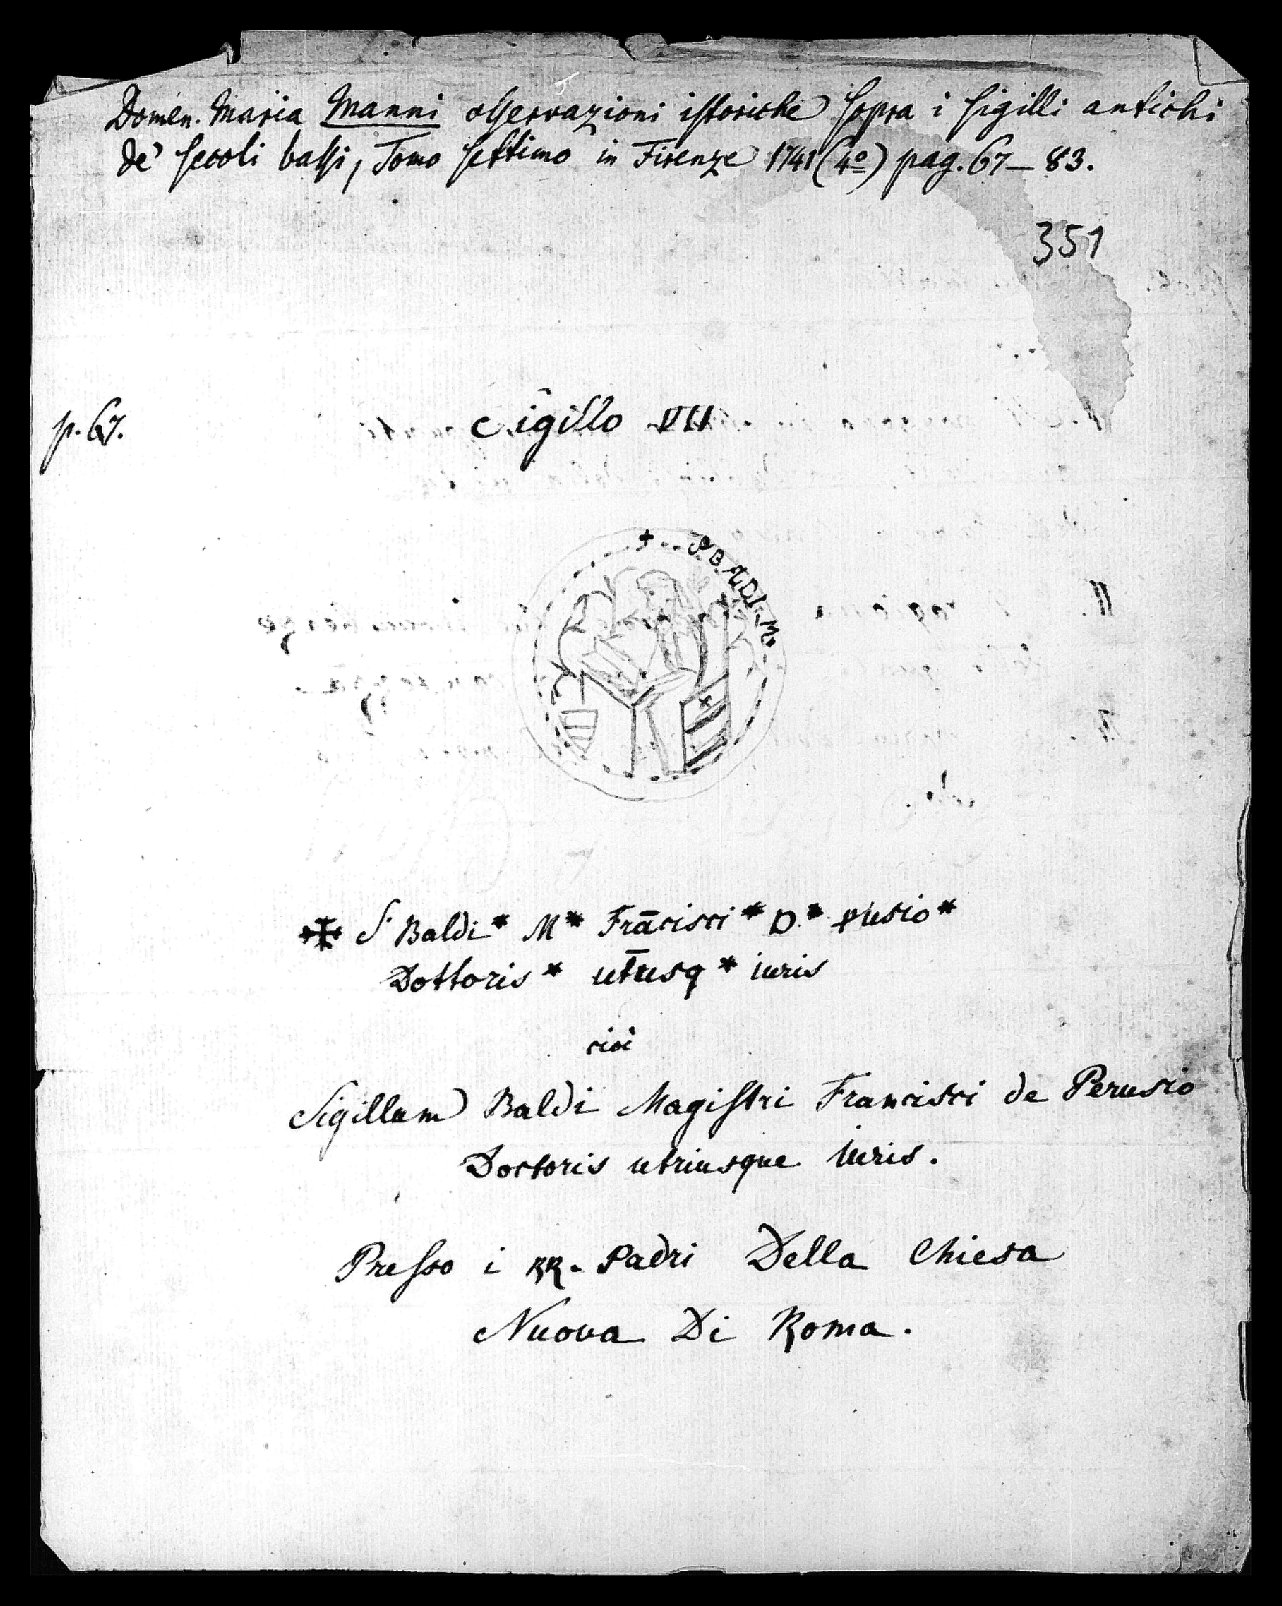 Domen. Maria Manni osservazioni istoriche sopra i sigilli antichi
de' secoli bassi, Tomo settimo in Firenze 1741 (4º) pag. 67–83.
351
p. 67.
Sigillo VII
+ S BALDI * M *
✠ S Baldi * M * Frācisci * D. * Pusio *
Dottoris * ut̄usq * iuris
cioè
Sigillum Baldi Magistri Francisci de Perusio
Doctoris utriusque iuris.
Presso i RR. Padri Della Chiesa
Nuova Di Roma.